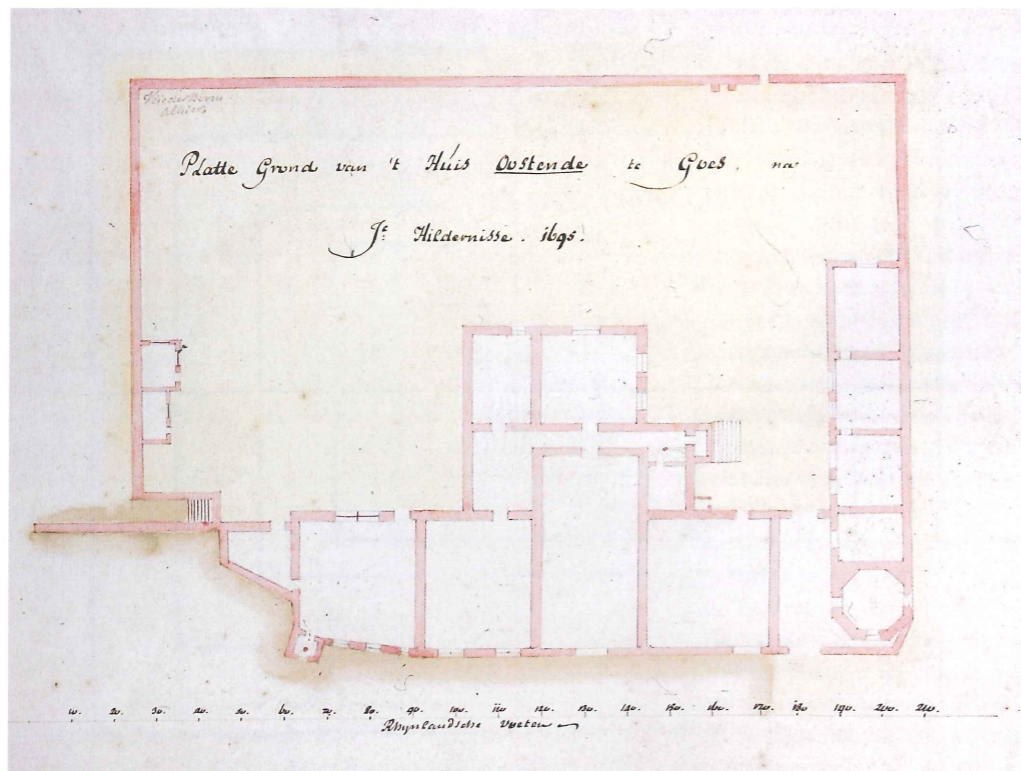 Platte Grond van 't Húis Oostende te Goes, na
Jc: Hildernisse. 1695.
10. 20. 30. 40. 50. 60. 70. 80. 90. 100. 110 120. 130. 140. 150. 160. 170. 180 190. 200. 210.
Rhynlandsche Voeten